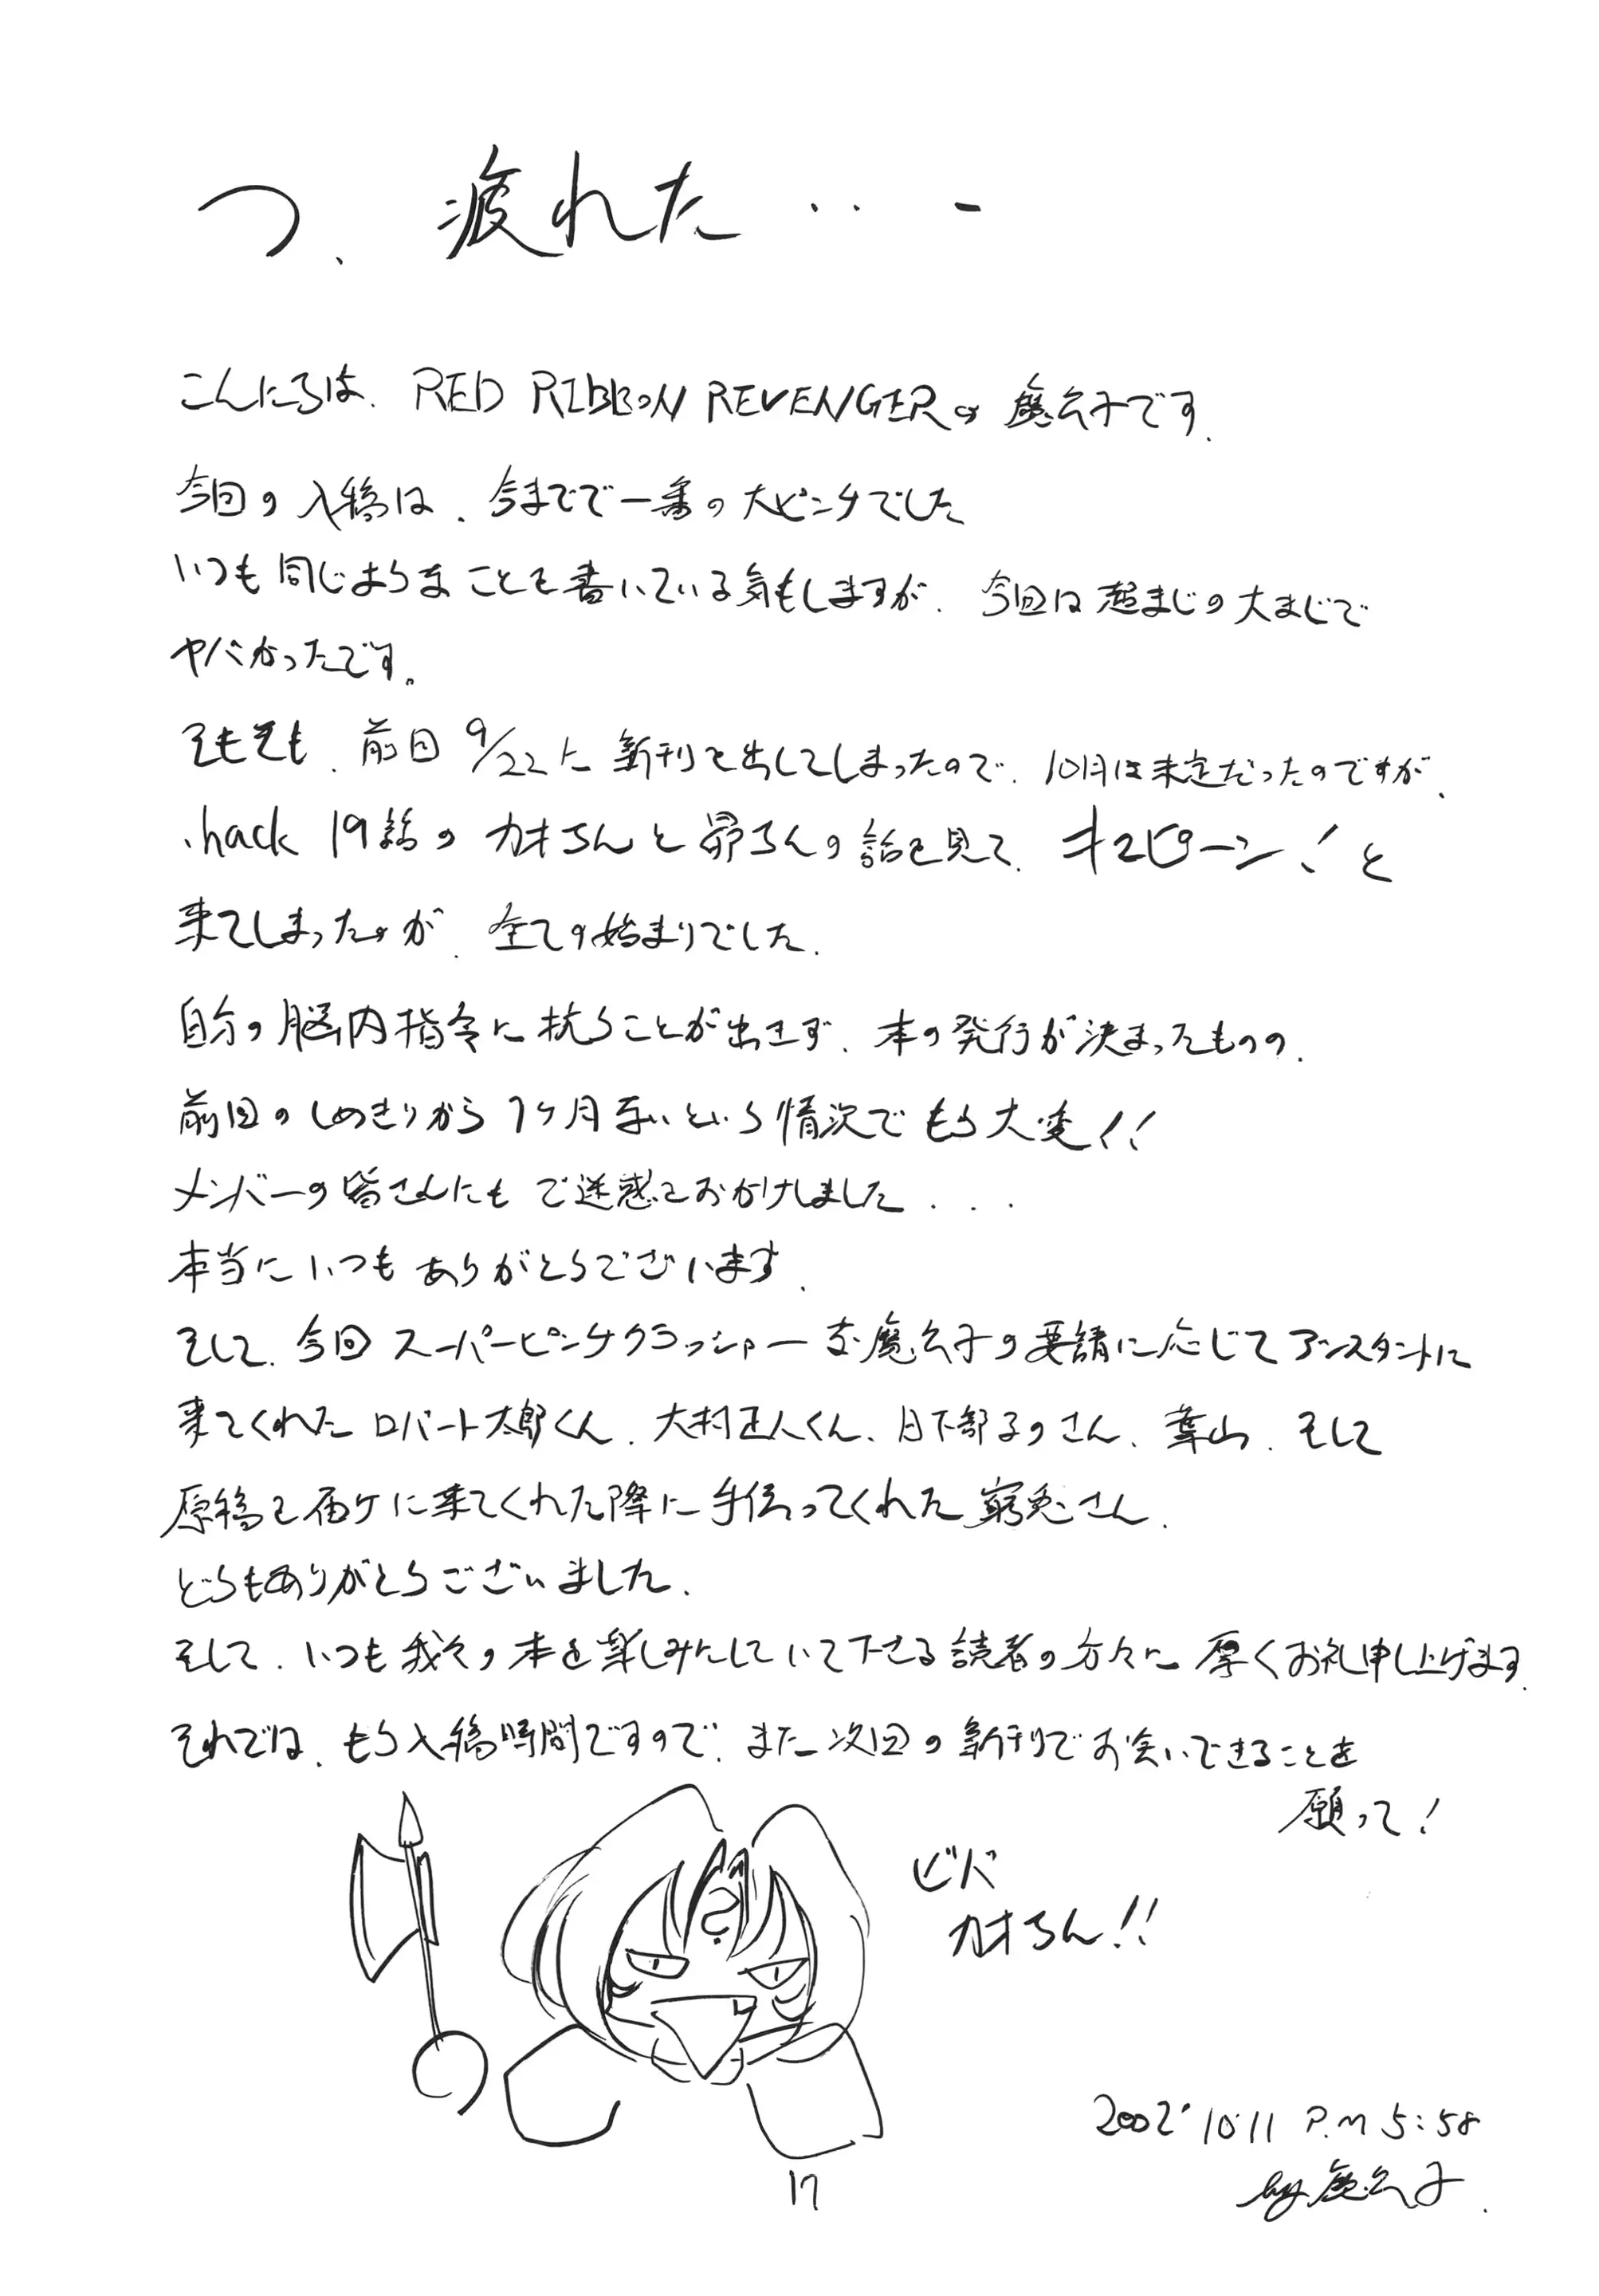 つ、疲れた・・・
こんにちは、RED RIBBON REVENGERの魔公子です。
今回の入稿は、今までで一番の大ピンチでした
いつも同じようなことを書いている気もしますが、今回は超まじの大まじで
ヤバかったです。
そもそも、前回9/22に新刊を出してしまったので、10月は未定だったのですが、
.hack 19話のカオちんと昴ちんの話を見て、キュピーン!と
来てしまったのが、全ての始まりでした。
自分の脳内指令に抗うことが出来ず、本の発行が決まったものの、
前回のしめきりから1ヶ月ないという情況でもう大変!!
メンバーの皆さんにもご迷惑をおかけしました...
本当にいつもありがとうございます。
そして、今回スーパーピンチクラッシャーな魔公子の要請に応じてアシスタントに
来てくれたロバート太郎くん、大村正人くん、日下部そのさん、葉山、そして
原稿を届けに来てくれた際に手伝ってくれた窮兎さん、
どうもありがとうございました。
そして、いつも我々の本を楽しみにしていて下さる読者の方々に厚くお礼申し上げます。
それでは、もう入稿時間ですので、また次回の新刊でお会いできることを
願って!
ビバ
カオちん!!
2002'10'11 P.M 5:58
by魔公子.
17